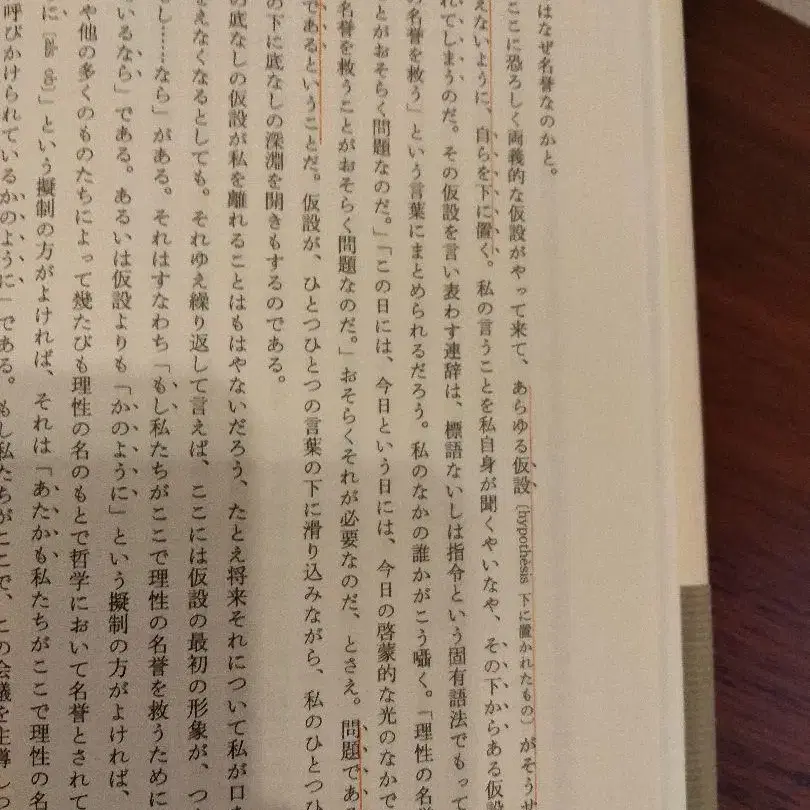 はなぜ名誉なのかと。
ここに恐ろしく両義的な仮設がやって来て、あらゆる仮設〔hypothesis 下に置かれたもの〕がそうせ
えないように、自らを下に置く。私の言うことを私自身が聞くやいなや、その下からある仮設
れてしまうのだ。その仮設を言い表わす連辞は、標語ないしは指令という固有語法でもって
の名誉を救う」という言葉にまとめられるだろう。私のなかの誰かがこう囁く。「理性の名誉
とがおそらく問題なのだ。」「この日には、今日という日には、今日の啓蒙的な光のなかで
名誉を救うことがおそらく問題なのだ。」おそらくそれが必要なのだ、とさえ。問題であ
であるということだ。仮設が、ひとつひとつの言葉の下に滑り込みながら、私のひとつひ
の下に底なしの深淵を開きもするのである。
の底なしの仮設が私を離れることはもはやないだろう、たとえ将来それについて私が口を
ぜえなくなるとしても。それゆえ繰り返して言えば、ここには仮設の最初の形象が、つ
し……なら」がある。それはすなわち「もし私たちがここで理性の名誉を救うために
いるなら」である。あるいは仮設よりも「かのように」という擬制の方がよければ、
や他の多くのものたちによって幾たびも理性の名のもとで哲学において名誉とされて
に〔als ob〕」という擬制の方がよければ、それは「あたかも私たちがここで理性の名
呼びかけられているかのように」である。もし私たちがここで、この会議を主導しつ